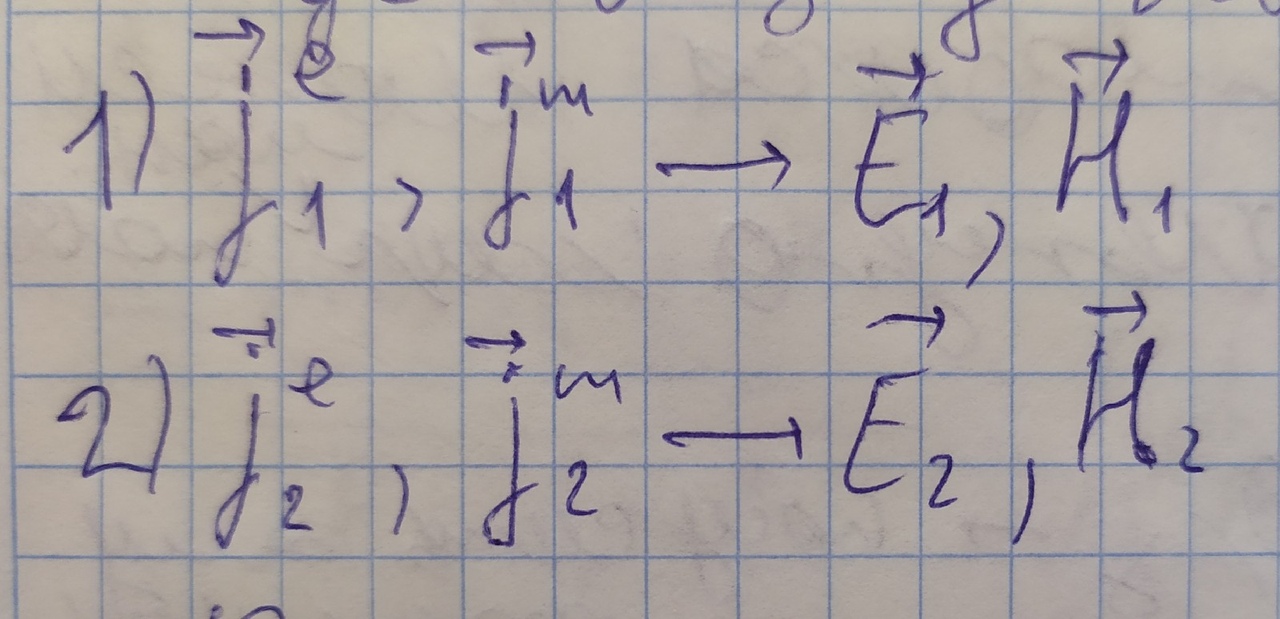 1) $\vec{j}^{e}_{1}, \vec{j}^{m}_{1} \rightarrow \vec{E}_{1}, \vec{H}_{1}$
2) $\vec{j}^{e}_{2}, \vec{j}^{m}_{2} \rightarrow \vec{E}_{2}, \vec{H}_{2}$